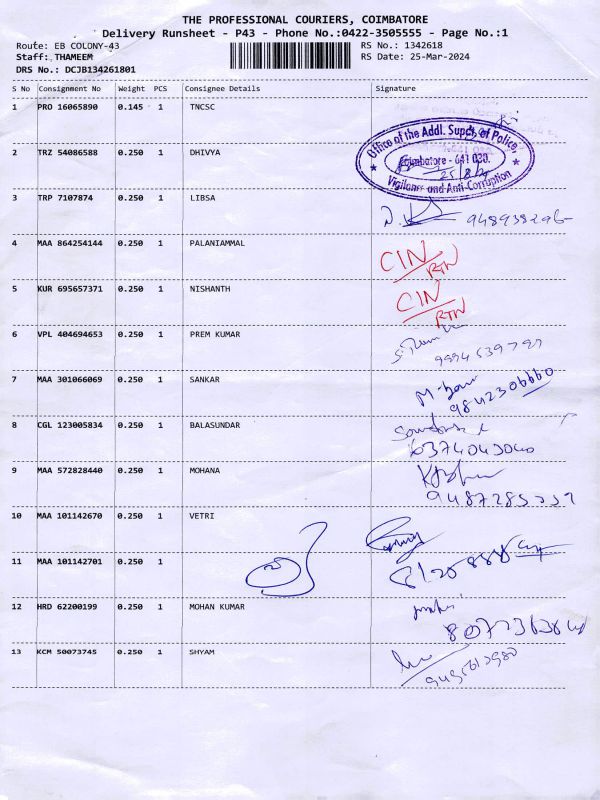 THE PROFESSIONAL COURIERS, COIMBATORE
Delivery Runsheet - P43 - Phone No.:0422-3505555 - Page No.:1
Route: EB COLONY-43 RS No.: 1342618
Staff: THAMEEM RS Date: 25-Mar-2024
DRS No.: DCJB134261801
S No Consignment No Weight PCS Consignee Details Signature
1 PRO 16065890 0.145 1 TNCSC
Office of the Addl. Supdt. of Police,
2 TRZ 54086588 0.250 1 DHIVYA
Coimbatore - 641 030.
Vigilance and Anti-Corruption
3 TRP 7107874 0.250 1 LIBSA
4 MAA 864254144 0.250 1 PALANIAMMAL CIN
RTN
5 KUR 695657371 0.250 1 NISHANTH CIN
RTN
6 VPL 404694653 0.250 1 PREM KUMAR
7 MAA 301066069 0.250 1 SANKAR
9842306660
8 CGL 123005834 0.250 1 BALASUNDAR
6374043040
9 MAA 572828440 0.250 1 MOHANA
10 MAA 101142670 0.250 1 VETRI
11 MAA 101142701 0.250 1
12 HRD 62200199 0.250 1 MOHAN KUMAR
13 KCM 50073745 0.250 1 SHYAM